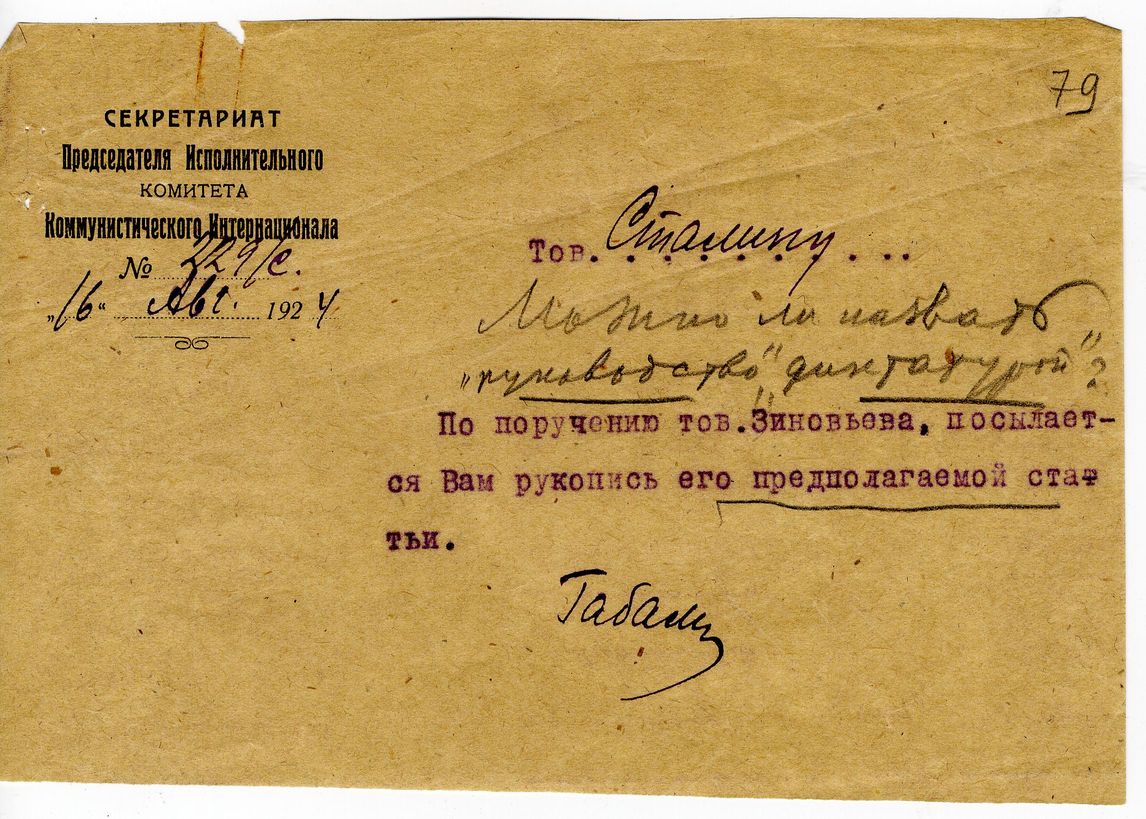 79
СЕКРЕТАРИАТ
Председателя Исполнительного
КОМИТЕТА
Коммунистического Интернационала
№ 229/с.
"16" Авг. 1924
Тов. Сталину...
Можно ли назвать
"руководство" "диктатурой"?
По поручению тов. Зиновьева, посылает-
ся Вам рукопись его предполагаемой ста-
тьи.